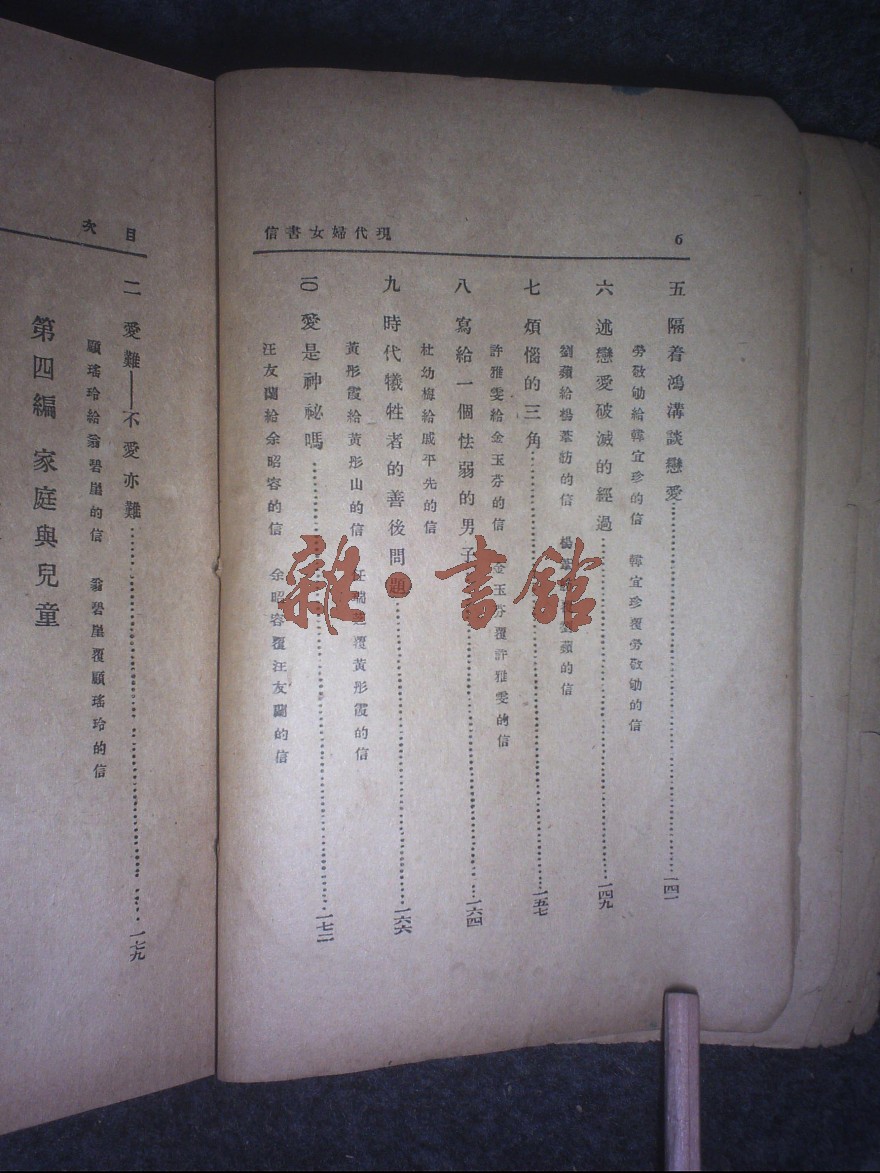 6
現代婦女書信
五 隔着鴻溝談戀愛……一四一
勞敬劬給韓宜珍的信 韓宜珍覆勞敬劬的信
六 述戀愛破滅的經過……一四九
劉蘋給楊葦舫的信 楊葦 劉蘋的信
七 煩惱的三角……一五七
許雅雯給金玉芬的信 金玉芬覆許雅雯的信
八 寫給一個怯弱的男子……一六四
杜幼梅給戚平先的信
九 時代犧牲者的善後問題……一六六
黃彤霞給黃彤山的信 任瑞 覆黃彤霞的信
一〇 愛是神祕嗎……一七二
汪友蘭給余昭容的信 余昭容覆汪友蘭的信
目次
愛難——不愛亦難……一七九
顧瑤玲給翁碧崖的信 翁碧崖覆顧瑤玲的信
第四編 家庭與兒童
雜·書館